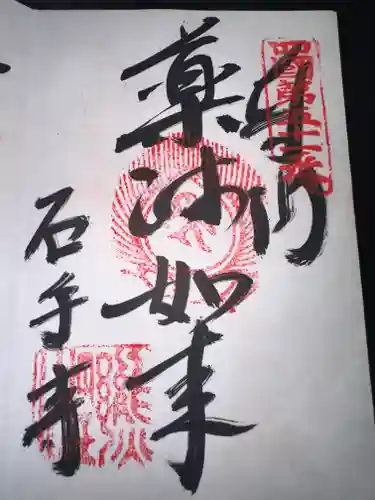 奉拝
四國第五十一番
薬師如来
石手寺